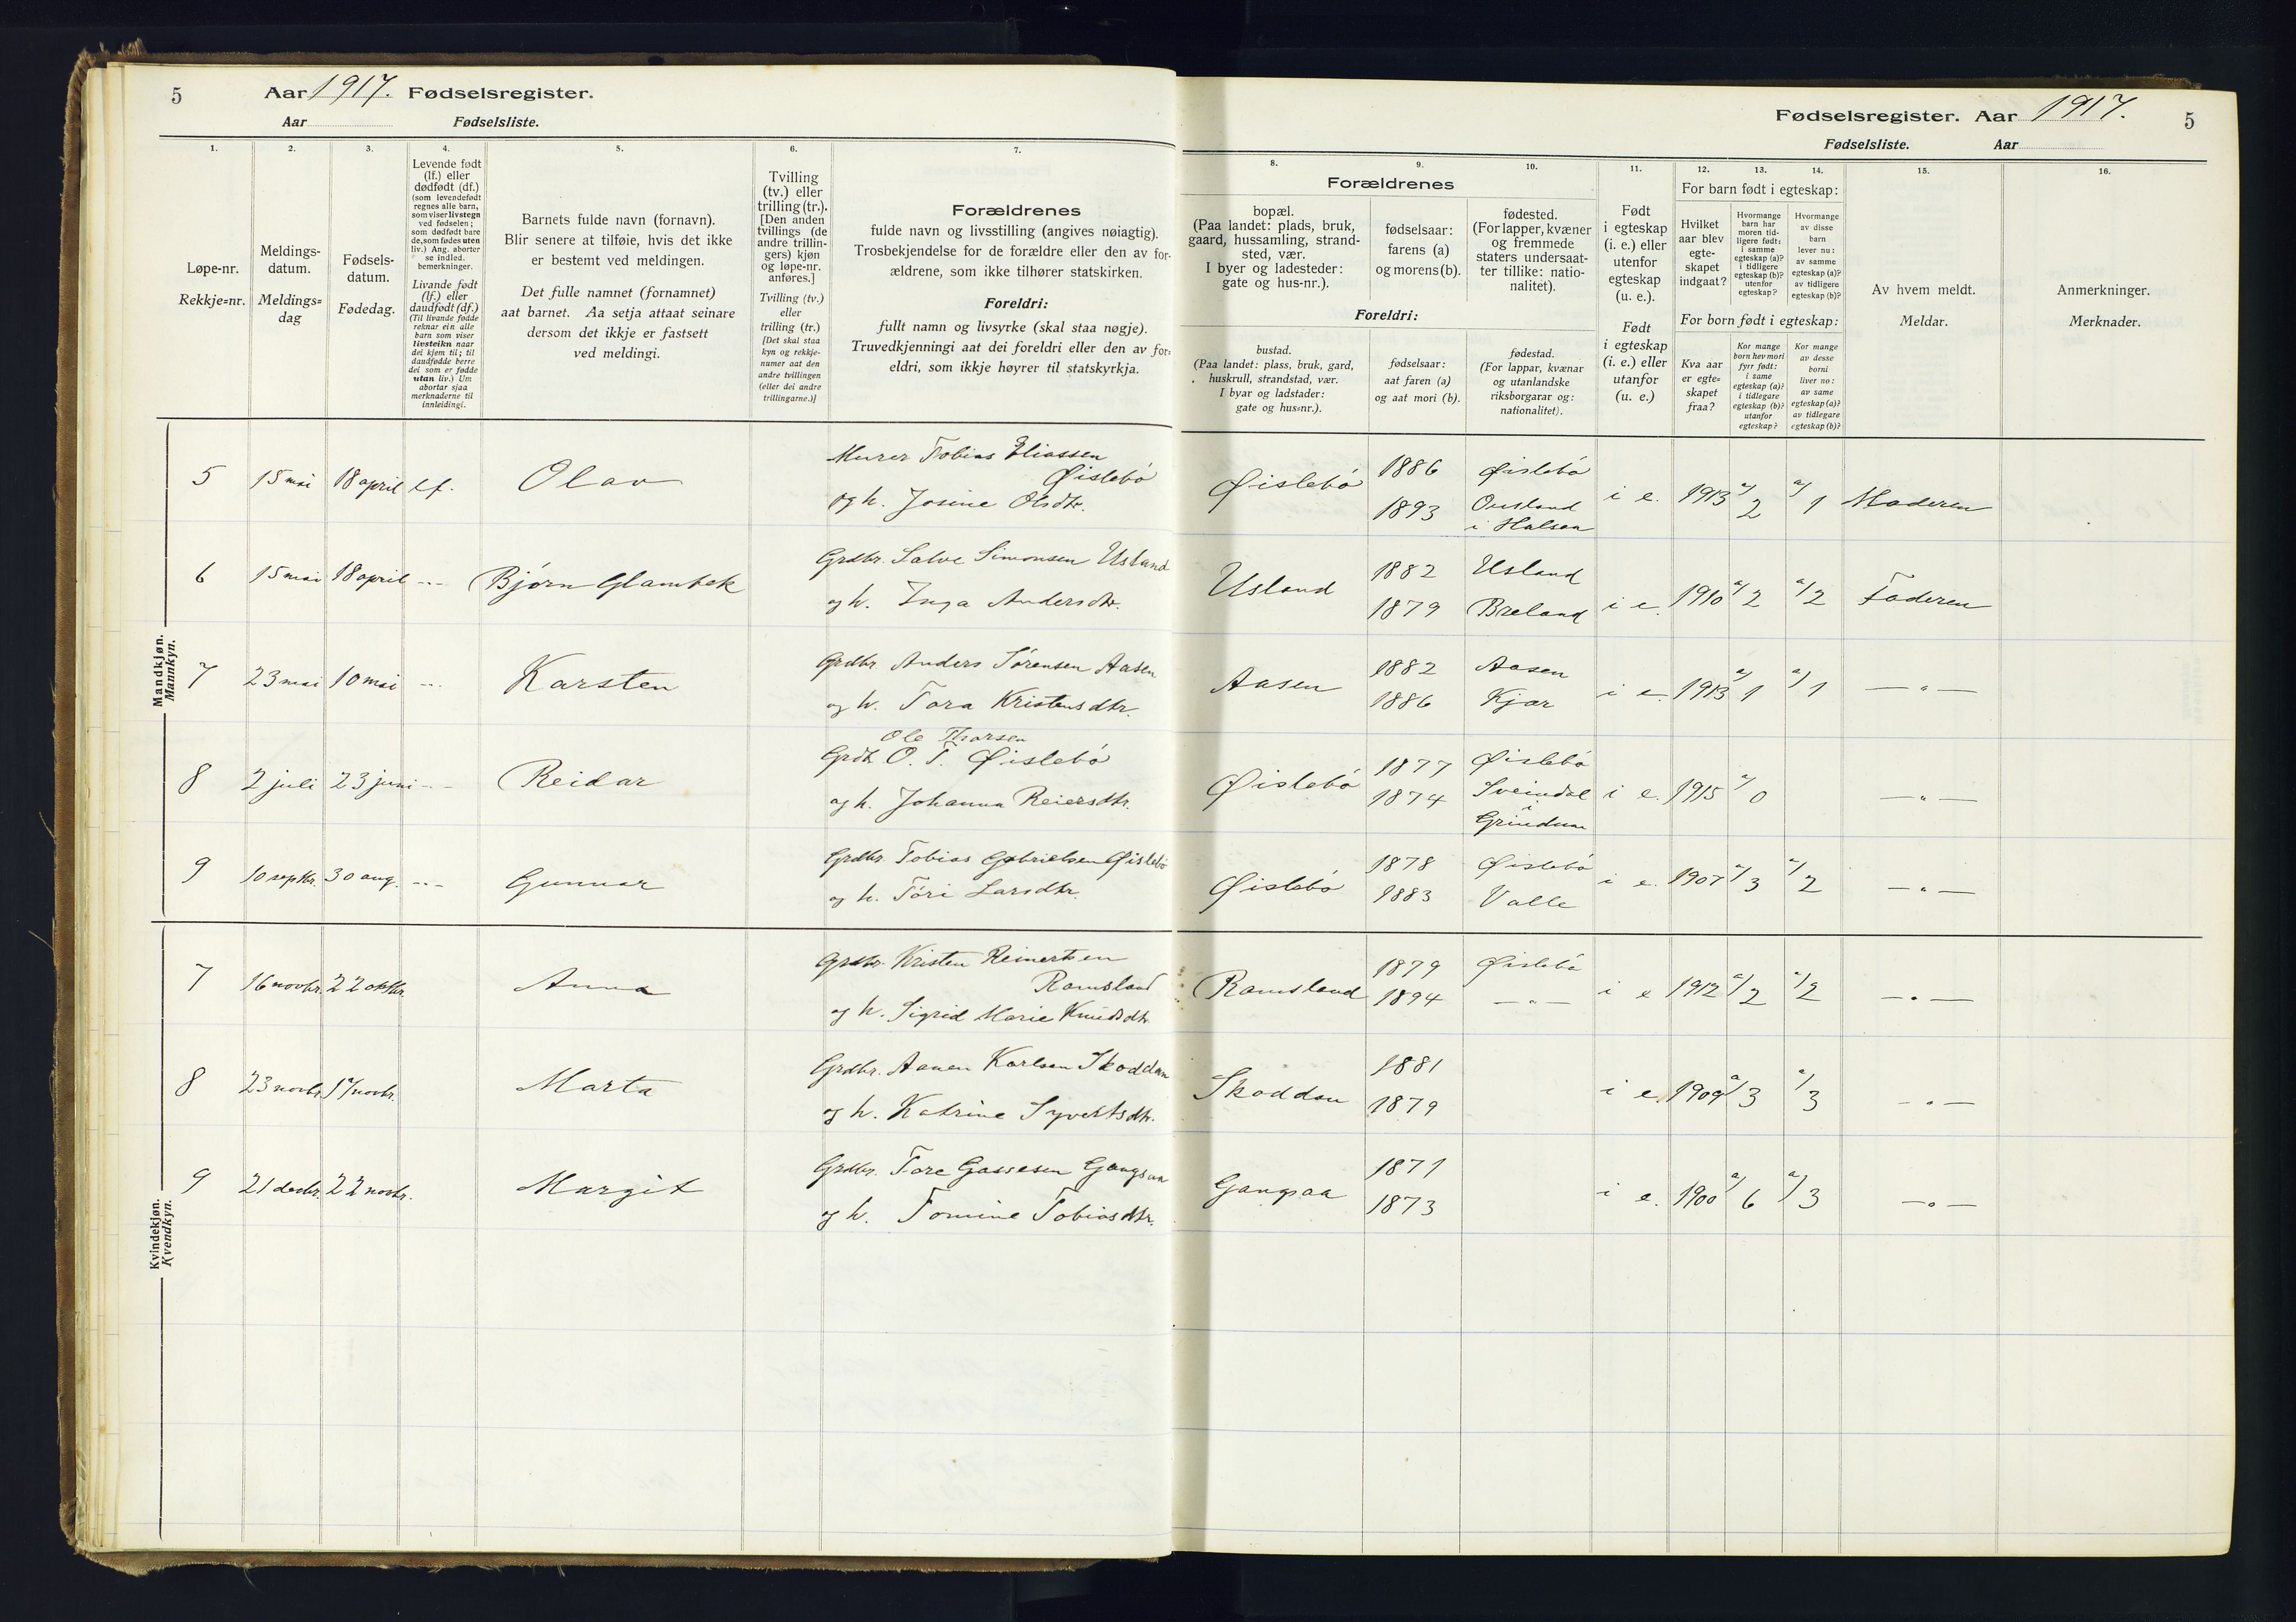 5 Aar 1917. Fødselsregister.
Aar Fødselsliste.
Fødselsregister. Aar 1917. 5
Fødselsliste. Aar
1.
Løpe-nr.
Rekkje=nr.
2.
Meldings-
datum.
Meldings=
dag
3.
Fødsels-
datum.
Fødedag.
4.
Levende født
(lf.) eller
dødfødt (df.)
(som levendefødt
regnes alle barn,
som viser livstegn
ved fødselen;
som dødfødt bare
de, som fødes uten
liv.) Ang. aborter
se indled.
bemerkninger.
Livande født
(lf.) eller
daudfødt (df.)
(Til livande fødde
reknar ein alle
barn som viser
livsteikn naar
dei kjem til; til
daudfødde berre
dei som er fødde
utan liv.) Um
abortar sjaa
merknaderne til
innleidingi.
5.
Barnets fulde navn (fornavn).
Blir senere at tilføie, hvis det ikke
er bestemt ved meldingen.
Det fulle namnet (fornamnet)
aat barnet. Aa setja attaat seinare
dersom det ikkje er fastsett
ved meldingi.
6.
Tvilling
(tv.) eller
trilling (tr.).
[Den anden
tvillings (de
andre trillin-
gers) kjøn
og løpe-nr.
anføres.]
Tvilling (tv.)
eller
trilling (tr.)
[Det skal staa
kyn og rekkje-
numer aat den
andre tvillingen
(eller dei andre
trillingarne.)]
7.
Forældrenes
fulde navn og livsstilling (angives nøiagtig).
Trosbekjendelse for de forældre eller den av for-
ældrene, som ikke tilhører statskirken.
Foreldri:
fullt namn og livsyrke (skal staa nøgje).
Truvedkjenningi aat dei foreldri eller den av for=
eldri, som ikkje høyrer til statskyrkja.
Forældrenes
8.
bopæl.
(Paa landet: plads, bruk,
gaard, hussamling, strand-
sted, vær.
I byer og ladesteder:
gate og hus-nr.).
Foreldri:
bustad.
(Paa landet: plass, bruk, gard,
huskrull, strandstad, vær.
I byar og ladstader:
gate og hus=nr.).
9.
fødselsaar:
farens (a)
og morens (b).
fødselsaar:
aat faren (a)
og aat mori (b).
10.
fødested.
(For lapper, kvæner
og fremmede
staters undersaat-
ter tillike: natio-
nalitet).
fødestad.
(For lappar, kvænar
og utanlandske
riksborgarar og:
nationalitet).
11.
Født
i egteskap
(i. e.) eller
utenfor
egteskap
(u. e.).
Født
i egteskap
(i. e.) eller
utanfor
(u. e.)
For barn født i egteskap:
12.
Hvilket
aar blev
egte-
skapet
indgaat?
For born født i egteskap:
Kva aar
er egte=
skapet
fraa?
13.
Hvormange
barn har
moren tid-
ligere født:
i samme
egteskap (a)?
i tidligere
egteskap (b)?
utenfor
egteskap?
Kor mange
born hev mori
fyrr født:
i same
egteskap (a)?
i tidlegare
egteskap (b)?
utanfor
egteskap?
14.
Hvormange
av disse
barn
lever nu:
av samme
egteskap (a)?
av tidligere
egteskap (b)?
Kor mange
av desse
borni
liver no:
av same
egteskap (a)?
av tidlegare
egteskap (b)?
15.
Av hvem meldt.
Meldar.
16.
Anmerkninger.
Merknader.
Mandkjøn.
Mannkyn.
5 15 mai 18 april lf. Olav
Murer Tobias Eliassen
Øislebø
og h. Josine Olsdtr.
Øislebø 1886 Øislebø
1893 Ousland
i Halsaa
i e. 1913 a/2 a/1 Moderen
6 15 mai 18 april -"- Bjørn Glambek
Grdbr. Salve Simonsen Usland
og h. Inga Andersdtr.
Usland 1882 Usland
1879 Breland
i e. 1910 a/2 a/2 Faderen
7 23 mai 10 mai -"- Karsten
Grdbr. Anders Sørensen Aasen
og h. Tora Kristensdtr.
Aasen 1882 Aasen
1886 Kjær
i e. 1913 a/1 a/1 —"—
8 2 juli 23 juni -"- Reidar
Ole Thorsen
Grdb. O. T. Øislebø
og h. Johanna Reiersdtr.
Øislebø 1877 Øislebø
1874 Sveindal
i
Grindum
i e. 1915 a/0 —"—
9 10 septbr. 30 aug. -"- Gunnar
Grdbr. Tobias Gabrielsen Øislebø
og h. Tøri Larsdtr.
Øislebø 1878 Øislebø
1883 Valle
i e. 1907 a/3 a/2 —"—
Kvindekjøn.
Kvendkyn.
7 16 novbr. 22 oktbr. Anna
Grdbr. Kristen Reinertsen
Ramsland
og h. Sigrid Marie Knudsdtr.
Ramsland 1879 Øislebø
1894 —"—
i e 1912 a/2 a/2 —"—
8 23 novbr. 17 novbr. Marta
Grdbr. Aanen Karlsen Skoddan
og h. Katrine Syvertsdtr.
Skoddan 1881
1879
i e. 1909 a/3 a/3 —"—
9 21 decbr. 22 novbr. Margit
Grdbr. Tore Gassesen Gangsaa
og h. Tomine Tobiasdtr.
Gangsaa 1871
1873
i e. 1900 a/6 a/3 —"—